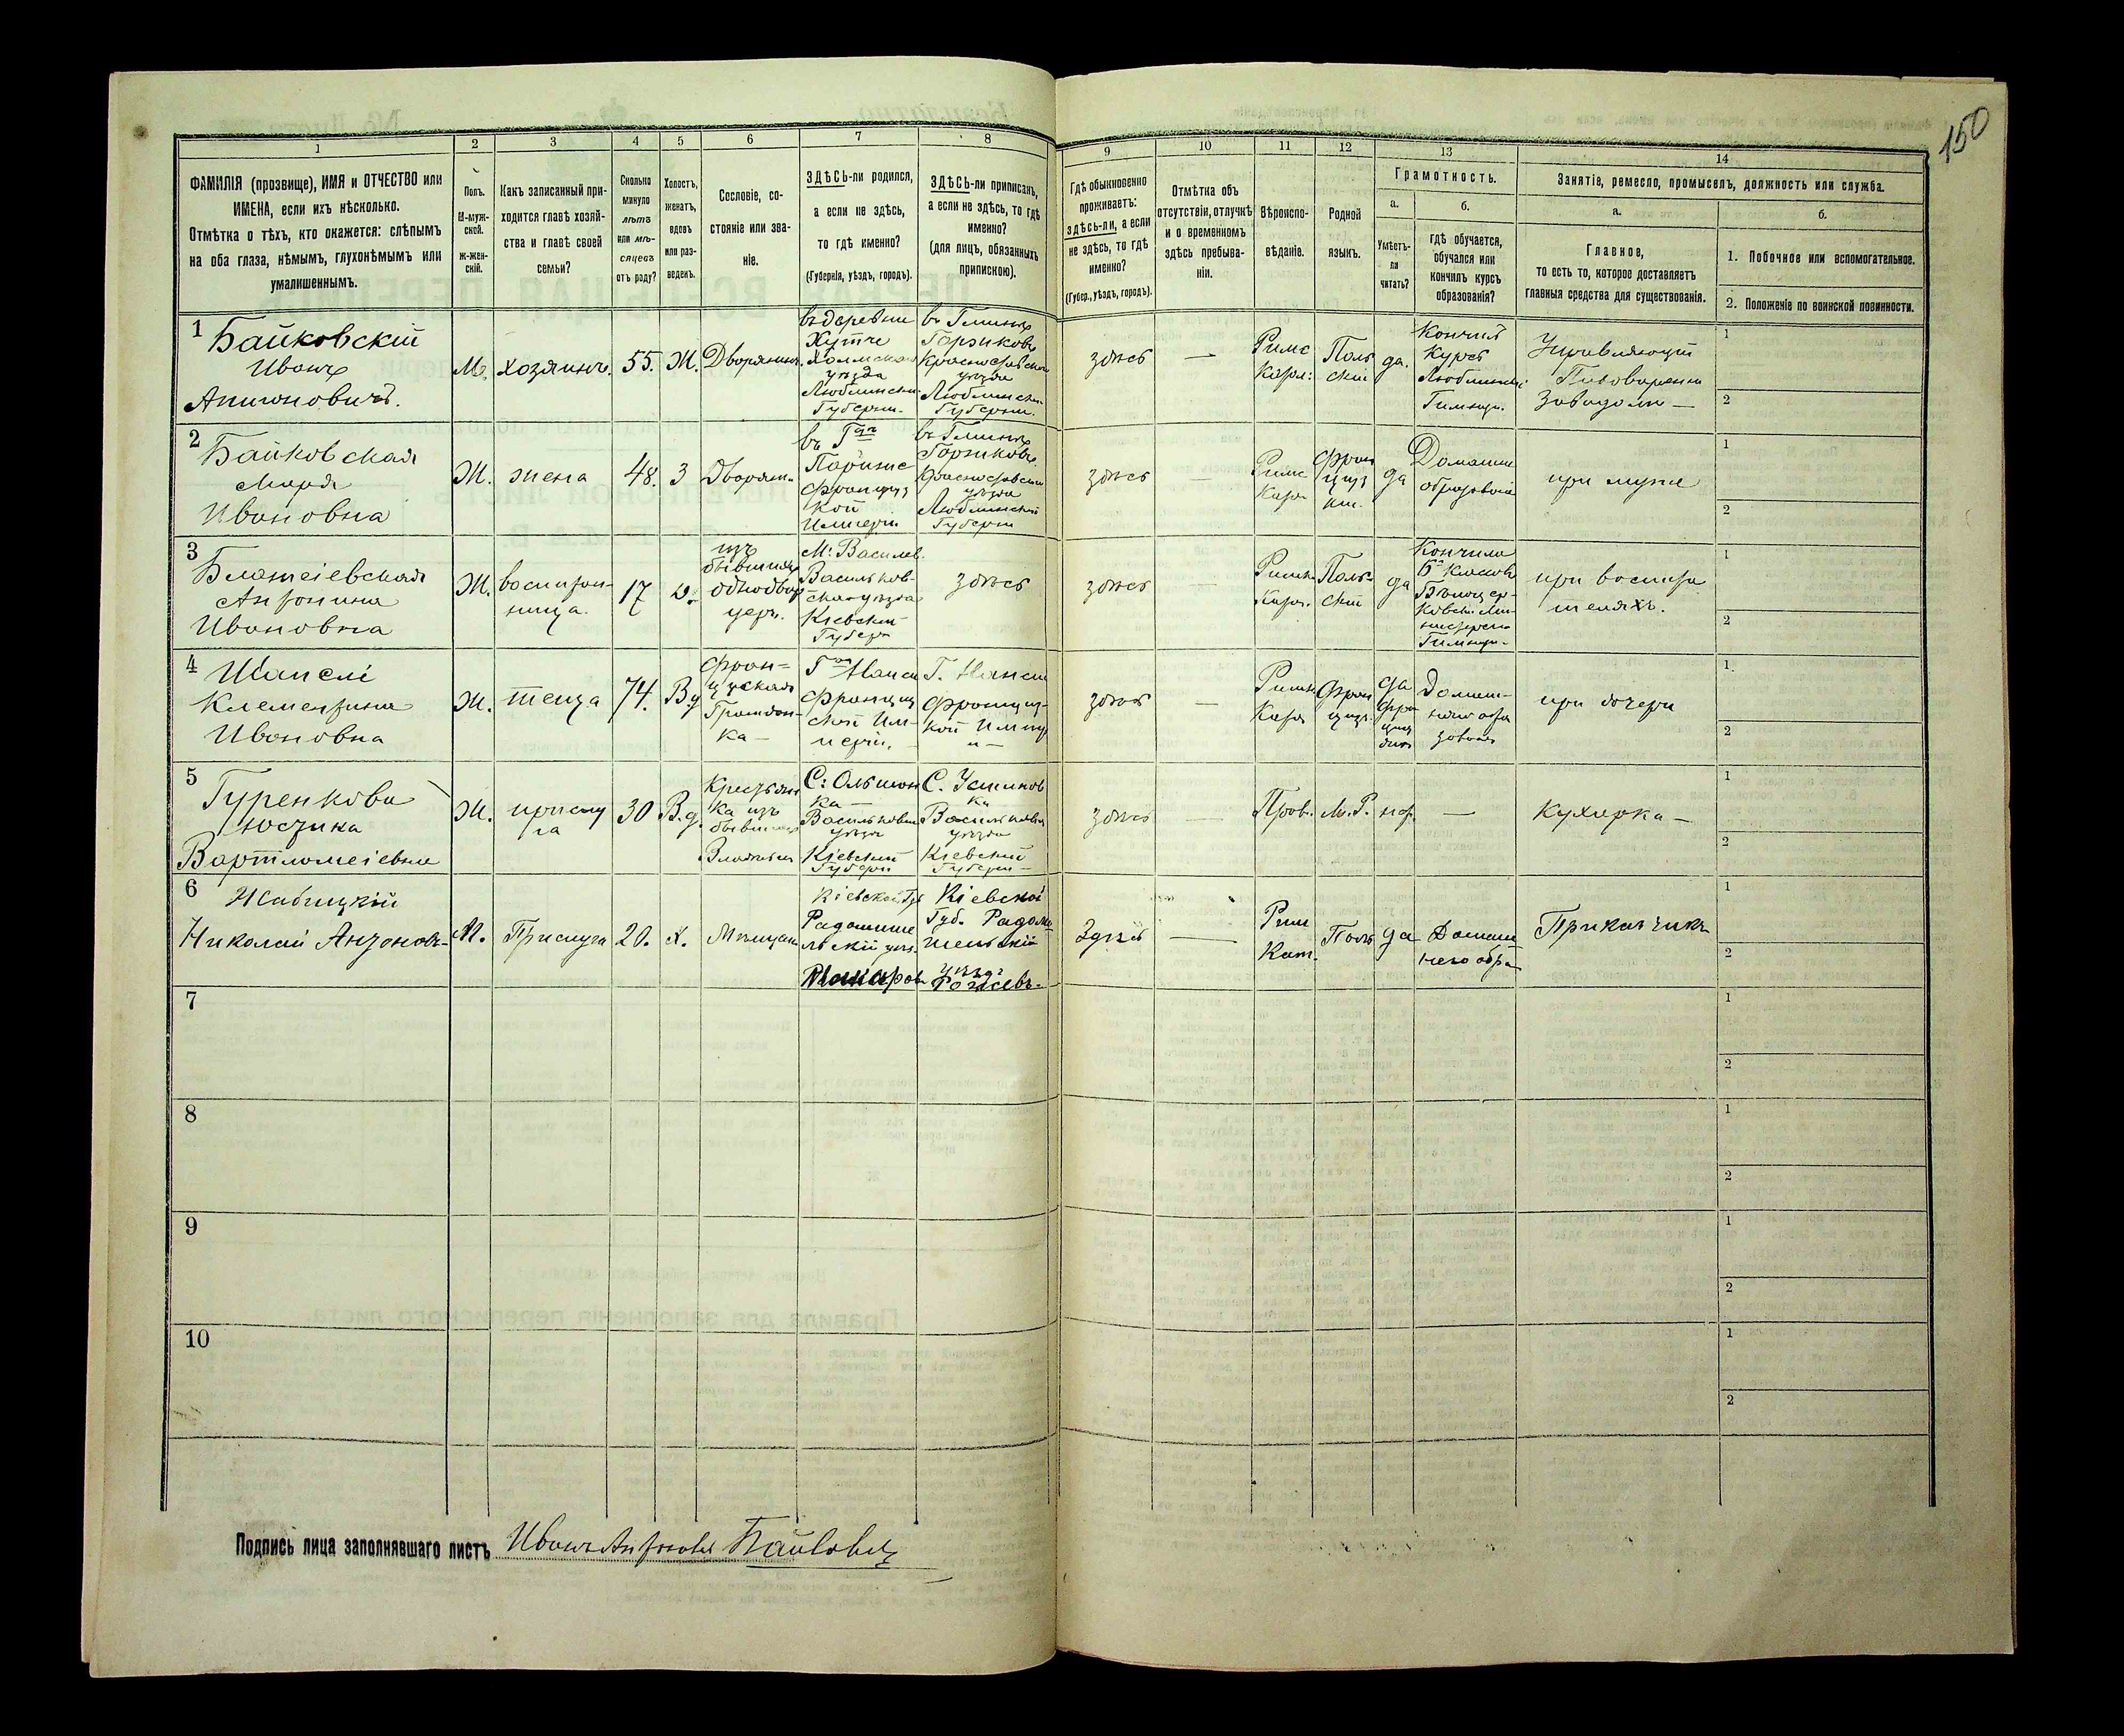 150
1 2 3 4 5 6 7 8 9 10 11 12 13 14
ФАМИЛІЯ (прозвище), ИМЯ и ОТЧЕСТВО или
ИМЕНА, если ихъ нѣсколько.
Отмѣтка о тѣхъ, кто окажется: слѣпымъ
на оба глаза, нѣмымъ, глухонѣмымъ или
умалишеннымъ.
Полъ.
М-муж-
ской.
Ж-жен-
скій.
Какъ записанный при-
ходится главѣ хозяй-
ства и главѣ своей
семьи?
Сколько
минуло
лѣтъ
или мѣ-
сяцевъ
отъ роду?
Холостъ,
женатъ,
вдовъ
или раз-
веденъ.
Сословіе, со-
стояніе или зва-
ніе.
ЗДѢСЬ-ли родился,
а если не здѣсь,
то гдѣ именно?
(Губернія, уѣздъ, городъ).
ЗДѢСЬ-ли приписанъ,
а если не здѣсь, то гдѣ
именно?
(для лицъ, обязанныхъ
припискою).
Гдѣ обыкновенно
проживаетъ:
здѣсь-ли, а если
не здѣсь, то гдѣ
именно?
(Губер., уѣздъ, городъ).
Отмѣтка объ
отсутствіи, отлучкѣ
и о временномъ
здѣсь пребыва-
ніи.
Вѣроиспо-
вѣданіе.
Родной
языкъ.
Грамотность.
а.
Умѣетъ-
ли
читать?
б.
гдѣ обучается,
обучался или
кончилъ курсъ
образованія?
Занятіе, ремесло, промыселъ, должность или служба.
а.
Главное,
то есть то, которое доставляетъ
главныя средства для существованія.
б.
1. Побочное или вспомогательное.
2. Положеніе по воинской повинности.
1
Байковскій
Иванъ
М.
хозяинъ.
55.
Ж.
Дворянинъ
въ деревни
Холмскаго
уѣзда
Люблинской
Губерни.
въ Гминѣ
Горжковъ
Красноставскаго
уѣзда
Люблинской
Губерни.
здѣсь
—
Римс
Катол:
Поль
скій
да.
Кончилъ
Курсъ
Люблинской
Гимнази.
Управляющій
Пивовареннымъ
Заводомъ —
1
2
2
Байковская
Марія
Ивановна
Ж.
жена
48.
З
Дворян.
въ
Парижѣ
Француз
кой
Имперіи
въ Гминѣ
Горжковъ
Красноставскаго
уѣзда
Люблинской
Губерни
здѣсь
—
Римс
Катол
Фран
цуз
кій.
да
Домашне
образованіе
при мужѣ
1
2
3
Антонина
Ивановна
Ж.
воспитан-
ница.
17
изъ
бывшихъ
однодвор
цевъ.
М: Василев.
Васильков-
скаго уѣзда
Кіевской
Губерн
здѣсь
здѣсь
—
Римск
Катол.
Поль-
скій
да
Кончила
Гимнази-
при воспита
теляхъ.
1
2
4
Клементина
Ивановна
Ж.
теща
74.
Вд
Фран-
цузская
Граждан-
ка —
Нанси
Француз
ской Им-
періи.
Г. Нанси
Француз-
кой Импер
здѣсь
—
Римск
Катол
Фран
цуз.
да
при дочери
1
2
5
Гуренкова
Юстина
Вартоломеіевна
Ж.
прислу
га
30
В.д.
Крестьян
ка изъ
бывшихъ
С: Ольшан
ка —
Васильковск
уѣзда
Кіевской
Губерни
С. Устимов
ка
Васильковск
уѣзда
Кіевской
Губерни —
здѣсь
—
Прав.
М.Р.
нѣт.
—
Кухарка —
1
2
6
Николай Антоновъ
М.
Прислуга
20.
Х.
Мѣщан
Кіевской Губ
Радомышль
скій уѣз.
Макаровъ
Кіевской
Губ. Радомы
шельскій
уѣздъ
Рожевъ.
Здѣсь
—
Рим
Кат.
Поль
да
Домаш
него обра
Приказчикъ
1
2
7
1
2
8
1
2
9
1
2
10
1
2
Подпись лица заполнявшаго листъ